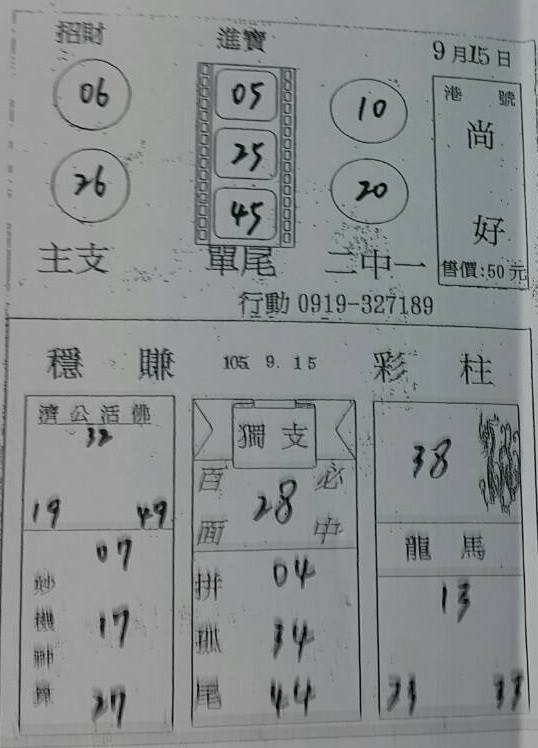 招財 進寶 9月15日
06 05 10 港 號
26 25 20 尚
45 好
主支 單尾 二中一 售價:50元
行動 0919-327189
穩 賺 105. 9. 15 彩 柱
濟公活佛 獨支
32 百 必 38
19 49 28
面 中 龍 馬
07 拼 04 13
妙機神算 17 孤 34
27 尾 44 33